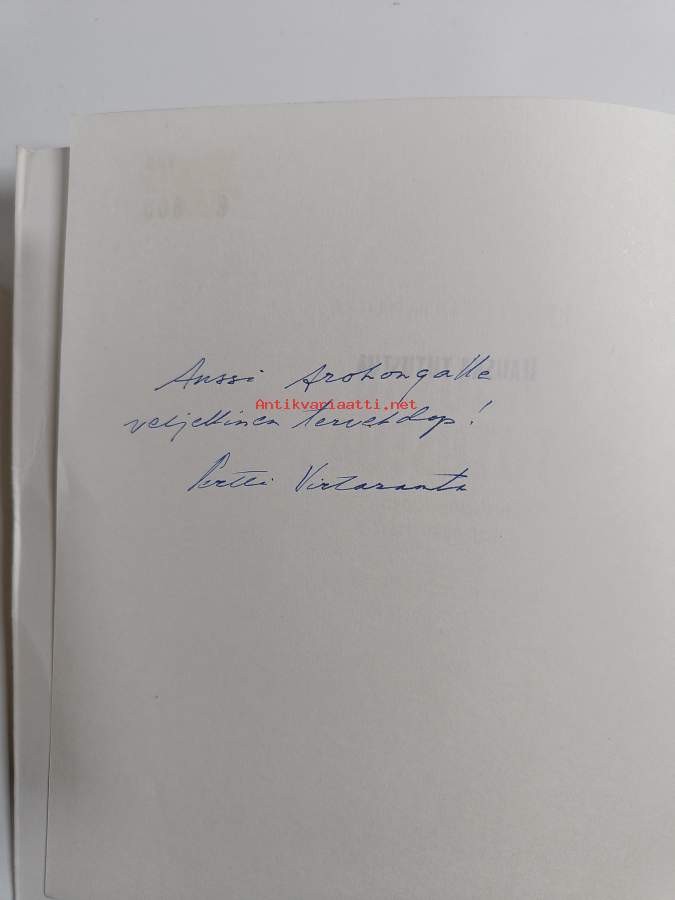 Anssi Arohongalle
Antikvariaatti.net
veljellinen tervehdys!
Pertti Virtaranta
HAUSKA TUTUSTUA